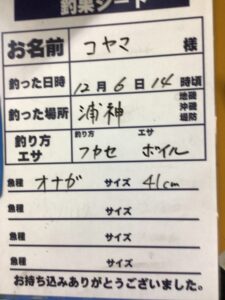 釣果シート
お名前 コヤマ 様
釣った日時 12月6日14時頃
釣った場所 浦神 地磯 沖磯 堤防
釣り方 エサ 釣り方 フカセ エサ ボイル
魚種 オナガ サイズ 41cm
魚種 サイズ
魚種 サイズ
魚種 サイズ
お持ち込みありがとうございました。